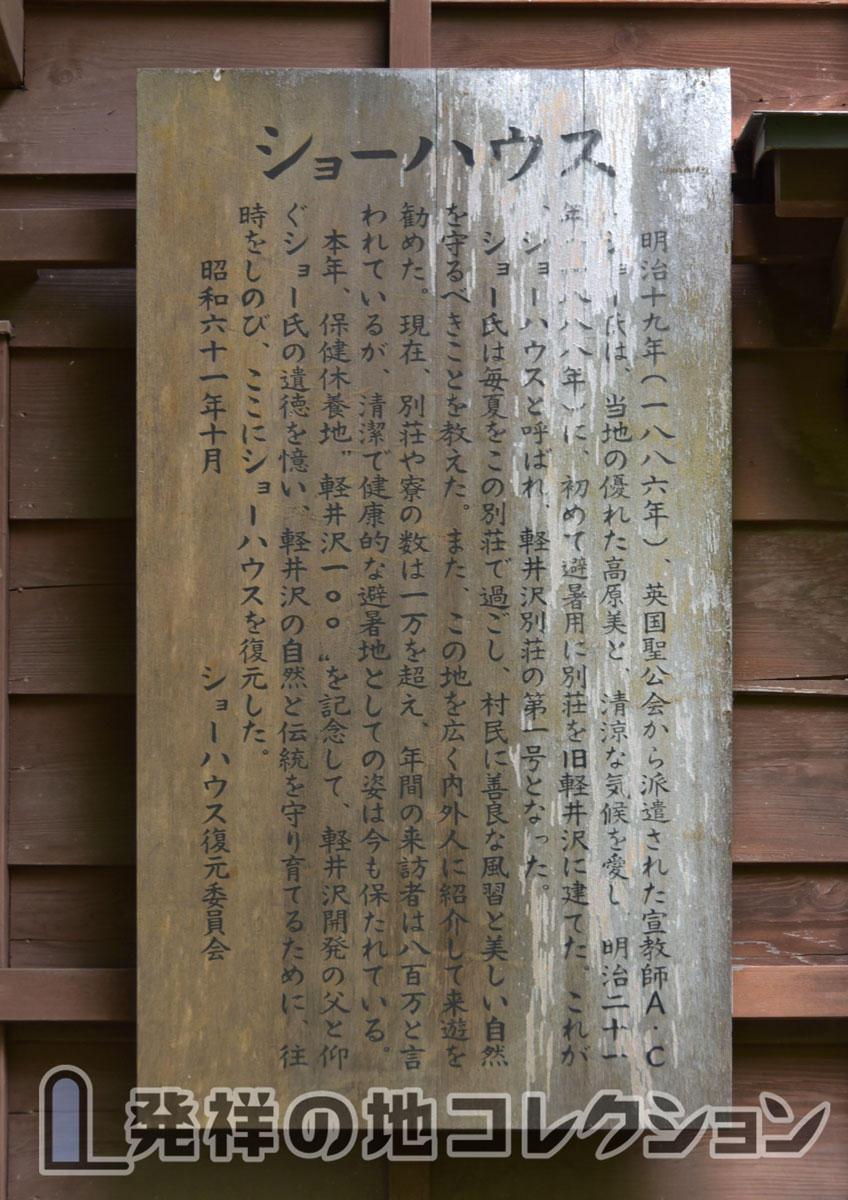 ショーハウス
明治十九年(一八八六年)、英国聖公会から派遣された宣教師A・C
・ショー氏は、当地の優れた高原美と、清涼な気候を愛し、明治二十一
年(一八八八年)に、初めて避暑用に別荘を旧軽井沢に建てた。これが
、ショーハウスと呼ばれ、軽井沢別荘の第一号となった。
ショー氏は毎夏をこの別荘で過ごし、村民に善良な風習と美しい自然
を守るべきことを教えた。また、この地を広く内外人に紹介して来遊を
勧めた。現在、別荘や寮の数は一万を超え、年間の来訪者は八百万と言
われているが、清潔で健康的な避暑地としての姿は今も保たれている。
本年、保健休養地〝軽井沢一〇〇〟を記念して、軽井沢開発の父と仰
ぐショー氏の遺徳を憶い、軽井沢の自然と伝統を守り育てるために、往
時をしのび、ここにショーハウスを復元した。
昭和六十一年十月
ショーハウス復元委員会
発祥の地コレクション